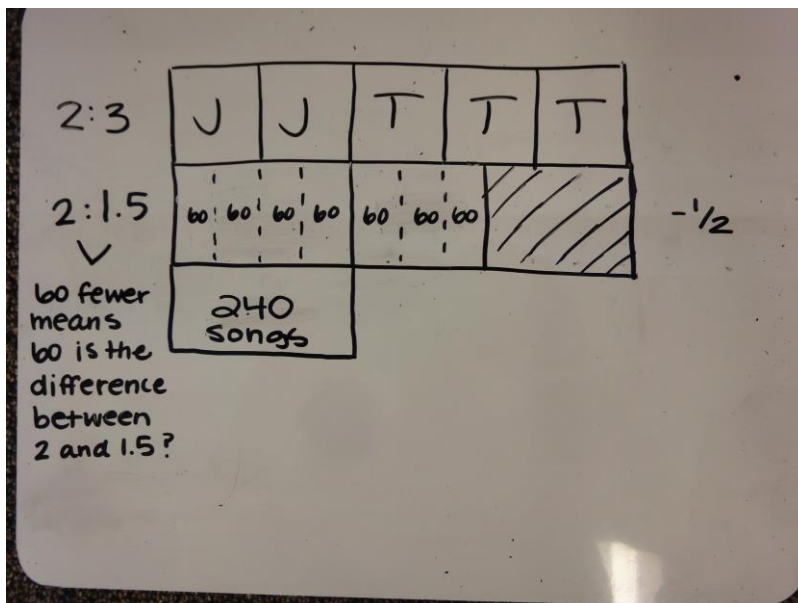 2:3 J J T T T
2:1.5 60 60 60 60 60 60 60 -1/2
60 fewer
means
60 is the
difference
between
2 and 1.5?
240
songs